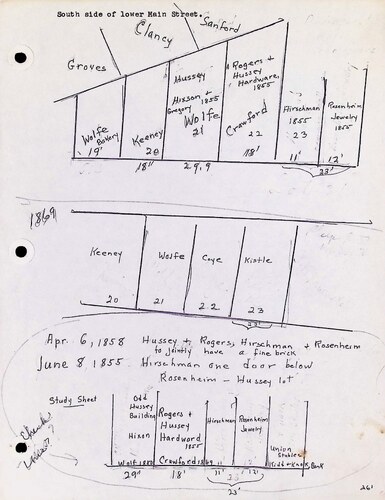 South side of lower Main Street.
Clancy
Sanford
Groves
Hussey
Hixson +
Gregory 1855
Wolfe
21
Rogers +
Hussey
Hardware,
1855
Crawford
22
Hirschman
1855
23
Rosenheim
Jewelry
1855
Wolfe
Bakery
19'
Keeney
20
18"
29,9
18'
11'
12'
23'
1869
Keeney
Wolfe
Coye
Kistle
20
21
22
23
23'
Apr. 6, 1858 Hussey + Rogers, Hirschman + Rosenheim
to jointly have a fine brick
June 8, 1855. Hirschman one door below
Rosenheim - Hussey lot
Study Sheet
Odd
Hussey
Building
Hixon
Rogers +
Hussey
Hardword
1855
Hirschman
Rosenheim
Jewelry
Union
Stables
Wolf 1880
Crawford 1869
11'
12'
Bank
29'
18'
23'
Check
261